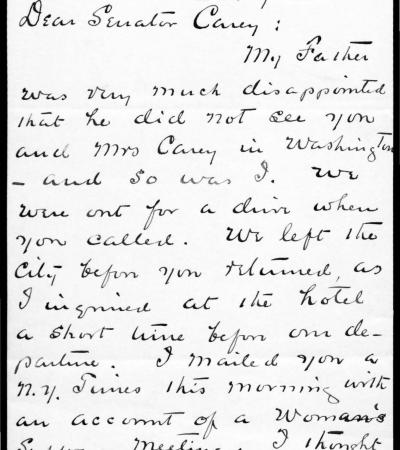 Dear Senator Carey:
My Father
was very much disappointed
that he did not see you
and Mrs Carey in Washington
– and so was I. We
were out for a drive when
you called. We left the
City before you returned, as
I inquired at the hotel
a short time before our de-
parture. I mailed you a
N.Y. Times this morning with
an account of a Woman's
Meeting. I thought